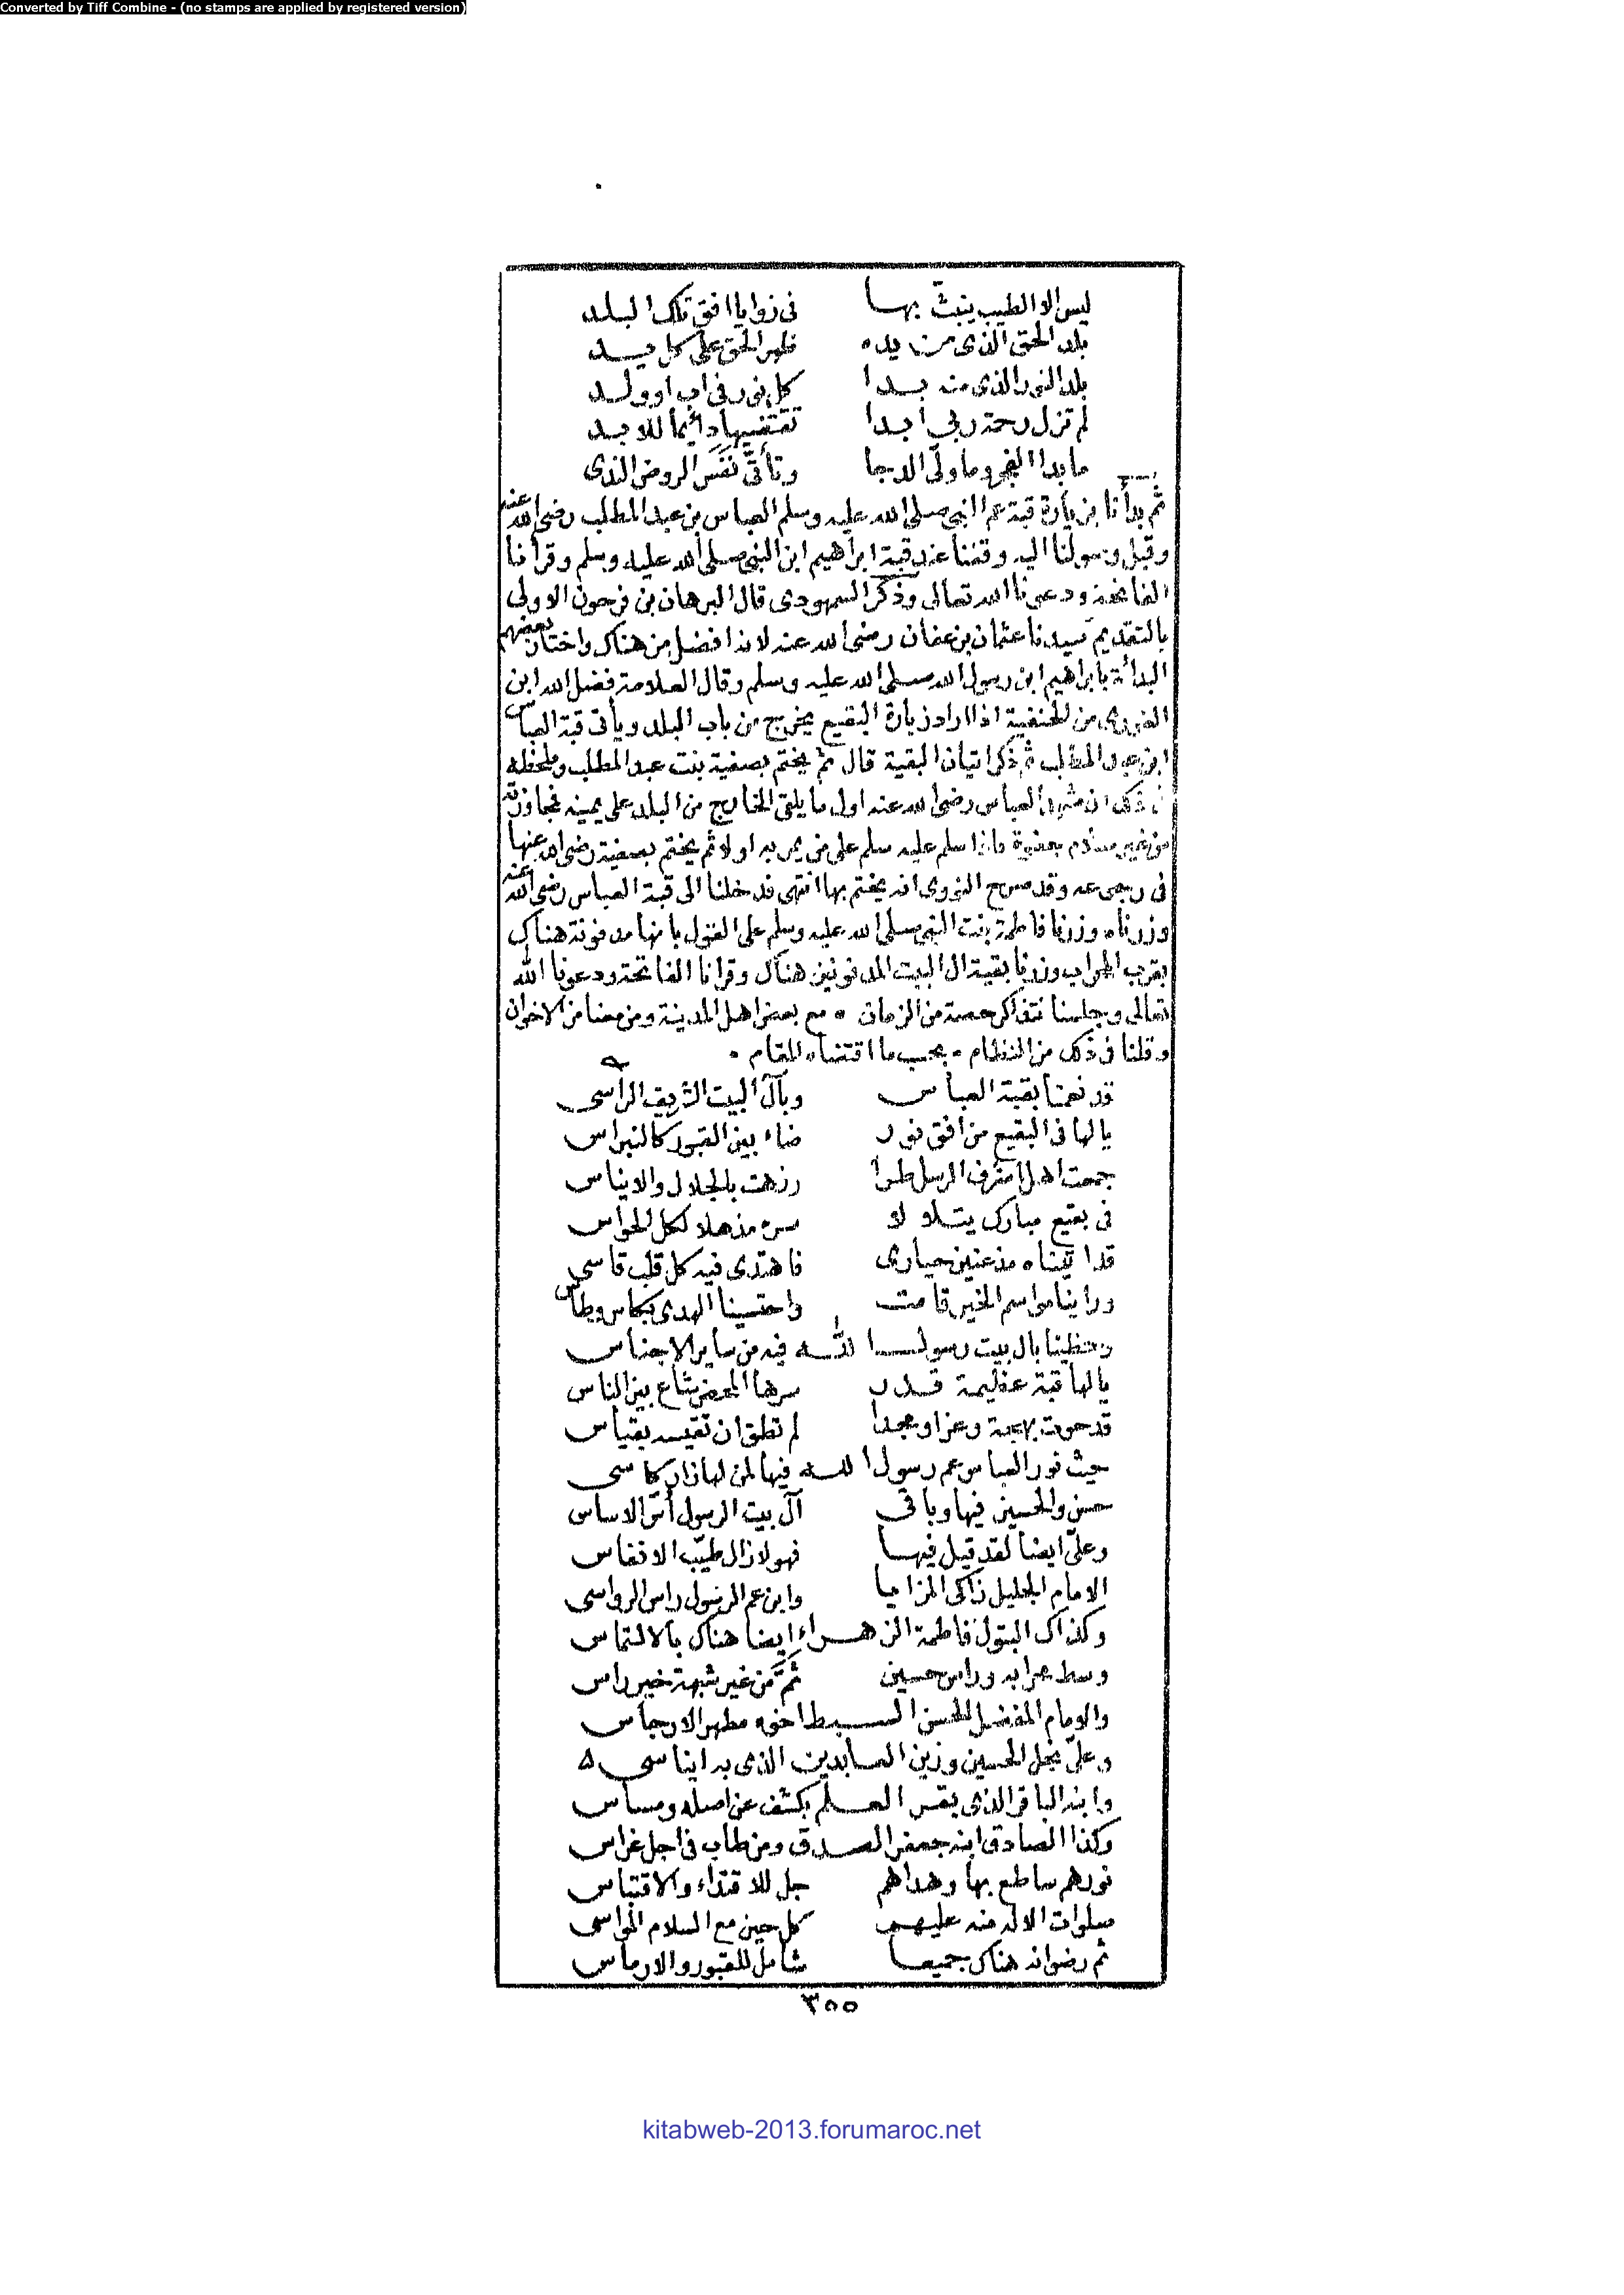 Converted by Tiff Combine - (no stamps are applied by registered version)
ليس الا الطيب ينبثّ بها فى زوايا افق تلك البلد
بلد الحق الذى من يده ظهر الحق على كل يد
بلد النور الذى منه بدا كل نور فى اب او ولد
لم تزل رحمة ربي ابدا تقتفيها دائما للابد
ما بدا الفجر وما ولّى الدجا وتأتّى نَفَس الروض الندى
ثم بدأنا بزيارة قبة عم النبي صلى الله عليه وسلم العباس بن عبد المطلب رضى الله عنه
وقبل وصولنا اليه وقفنا عند قبة ابراهيم ابن النبي صلى الله عليه وسلم وقرأنا
الفاتحة ودعونا الله تعالى وذكر السمهودى قال البرهان بن فرحون الاولى
بالتقديم سيدنا عثمان بن عفان رضى الله عنه لانه افضل من هناك واختار بعضهم
البدأة بابراهيم ابن رسول الله صلى الله عليه وسلم وقال العلامة فضل الله ابن
الغورى من الحنفية اذا اراد زيارة البقيع يخرج من باب البلد ويأتى قبة العباس
ابن عبد المطلب ثم ذكر اتيان البقية قال ثم يختم بصفية بنت عبد المطلب وملحظه
فى ذلك ان مشهد العباس رضى الله عنه اول ما يلقى الخارج من البلد على يمينه فمجاوزته
من غير سلام جفوة فاذا سلم عليه سلم على من يمر به اولا ثم يختم بصفية رضى الله عنها
فى رجوعه وقد صرح النووى انه يختم بها انتهى فدخلنا الى قبة العباس رضى الله عنه
وزرناه وزرنا فاطمة بنت النبي صلى الله عليه وسلم على القول بانها مدفونة هناك
بقرب المحراب وزرنا بقية ال البيت المدفونين هناك وقرانا الفاتحة ودعونا الله
تعالى وجلسنا نتذاكر حصة من الزمان ٠ مع بعض اهل المدينة ومن معنا من الاخوان
وقلنا فى ذلك من النظام ٠ بحسب ما اقتضاه المقام ٠
قد نعمنا بقبة العباس وبآل البيت الشريف الراسى
يالها فى البقيع من افق نور ضاء بين القبور كالنبراس
جمعت اهل اشرف الرسل طرا وزهت بالجلال والايناس
فى بقيع مبارك يتلالا سره مذهلا لكل الحواس
قد اتيناه مذعنين حيارى فاهتدى فيه كل قلب قاسى
وراينا مواسم الخير قامت واحتسينا الهدى بكاس وطاس
وحظينا بال بيت رسول الله فيه من ساير الاجناس
يالها قبة عظيمة قدر سرها المحض شاع بين الناس
قد حوت بهجة وعزا ومجدا لم تطق ان تقيسه بقياس
حيث نور العباس عم رسول الله فيها لمن لها زار كاسى
حسن والحسين فيها وباقى آل بيت الرسول أسّ الاساس
وعلىّ ايضا لقد قيل فيها فهو لازال طيّب الانفاس
الامام الجليل زاكى المزايا وابن عم الرسول راس الرواسى
وكذاك البتول فاطمة الزهراء ايضا هناك بالالتماس
وسط محرابه وراس حسين ثَمَّ من غير شبهة خير راس
والامام المفضل الحسن السبط اخوه مطهر الارجاس
وعلىّ نجل الحسين وزين العابدين الذى به ايناسى ه
وابنه الباقر الذى بقر العلم بكشف عن اصله ومساس
وكذا الصادق ابنه جعفر الصدق ومن طاب فى اجل غراس
نورهم ساطع بها وهداهم جل للاقتداء والاقتباس
صلوات الاله منه عليهم كل حين مع السلام المواسى
ثم رضوانه هناك جميعا شامل للقبور والارماس
٣٥٥
kitabweb-2013.forumaroc.net